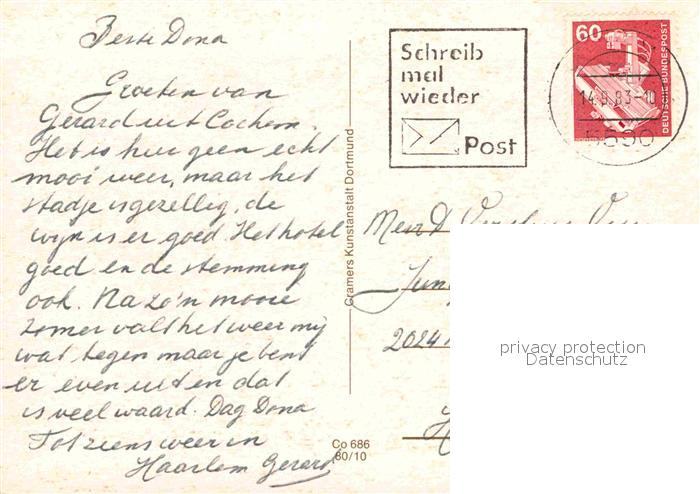 Beste Dona
Groeten van
Gerard uit Cochem.
Het is hier geen echt
mooi weer, maar het
stadje is gezellig, de
wijn is er goed. Het hotel
goed en de stemming
ook. Na zo'n mooie
zomer valt het weer mij
wat tegen maar je bent
er even uit en dat
is veel waard. Dag Dona
Tot ziens weer in
Haarlem Gerard
Cramers Kunstanstalt Dortmund
Co 686
80/10
Schreib
mal
wieder
Post
60
DEUTSCHE BUNDESPOST
14.9.83-10
5590
2024
privacy protection
Datenschutz